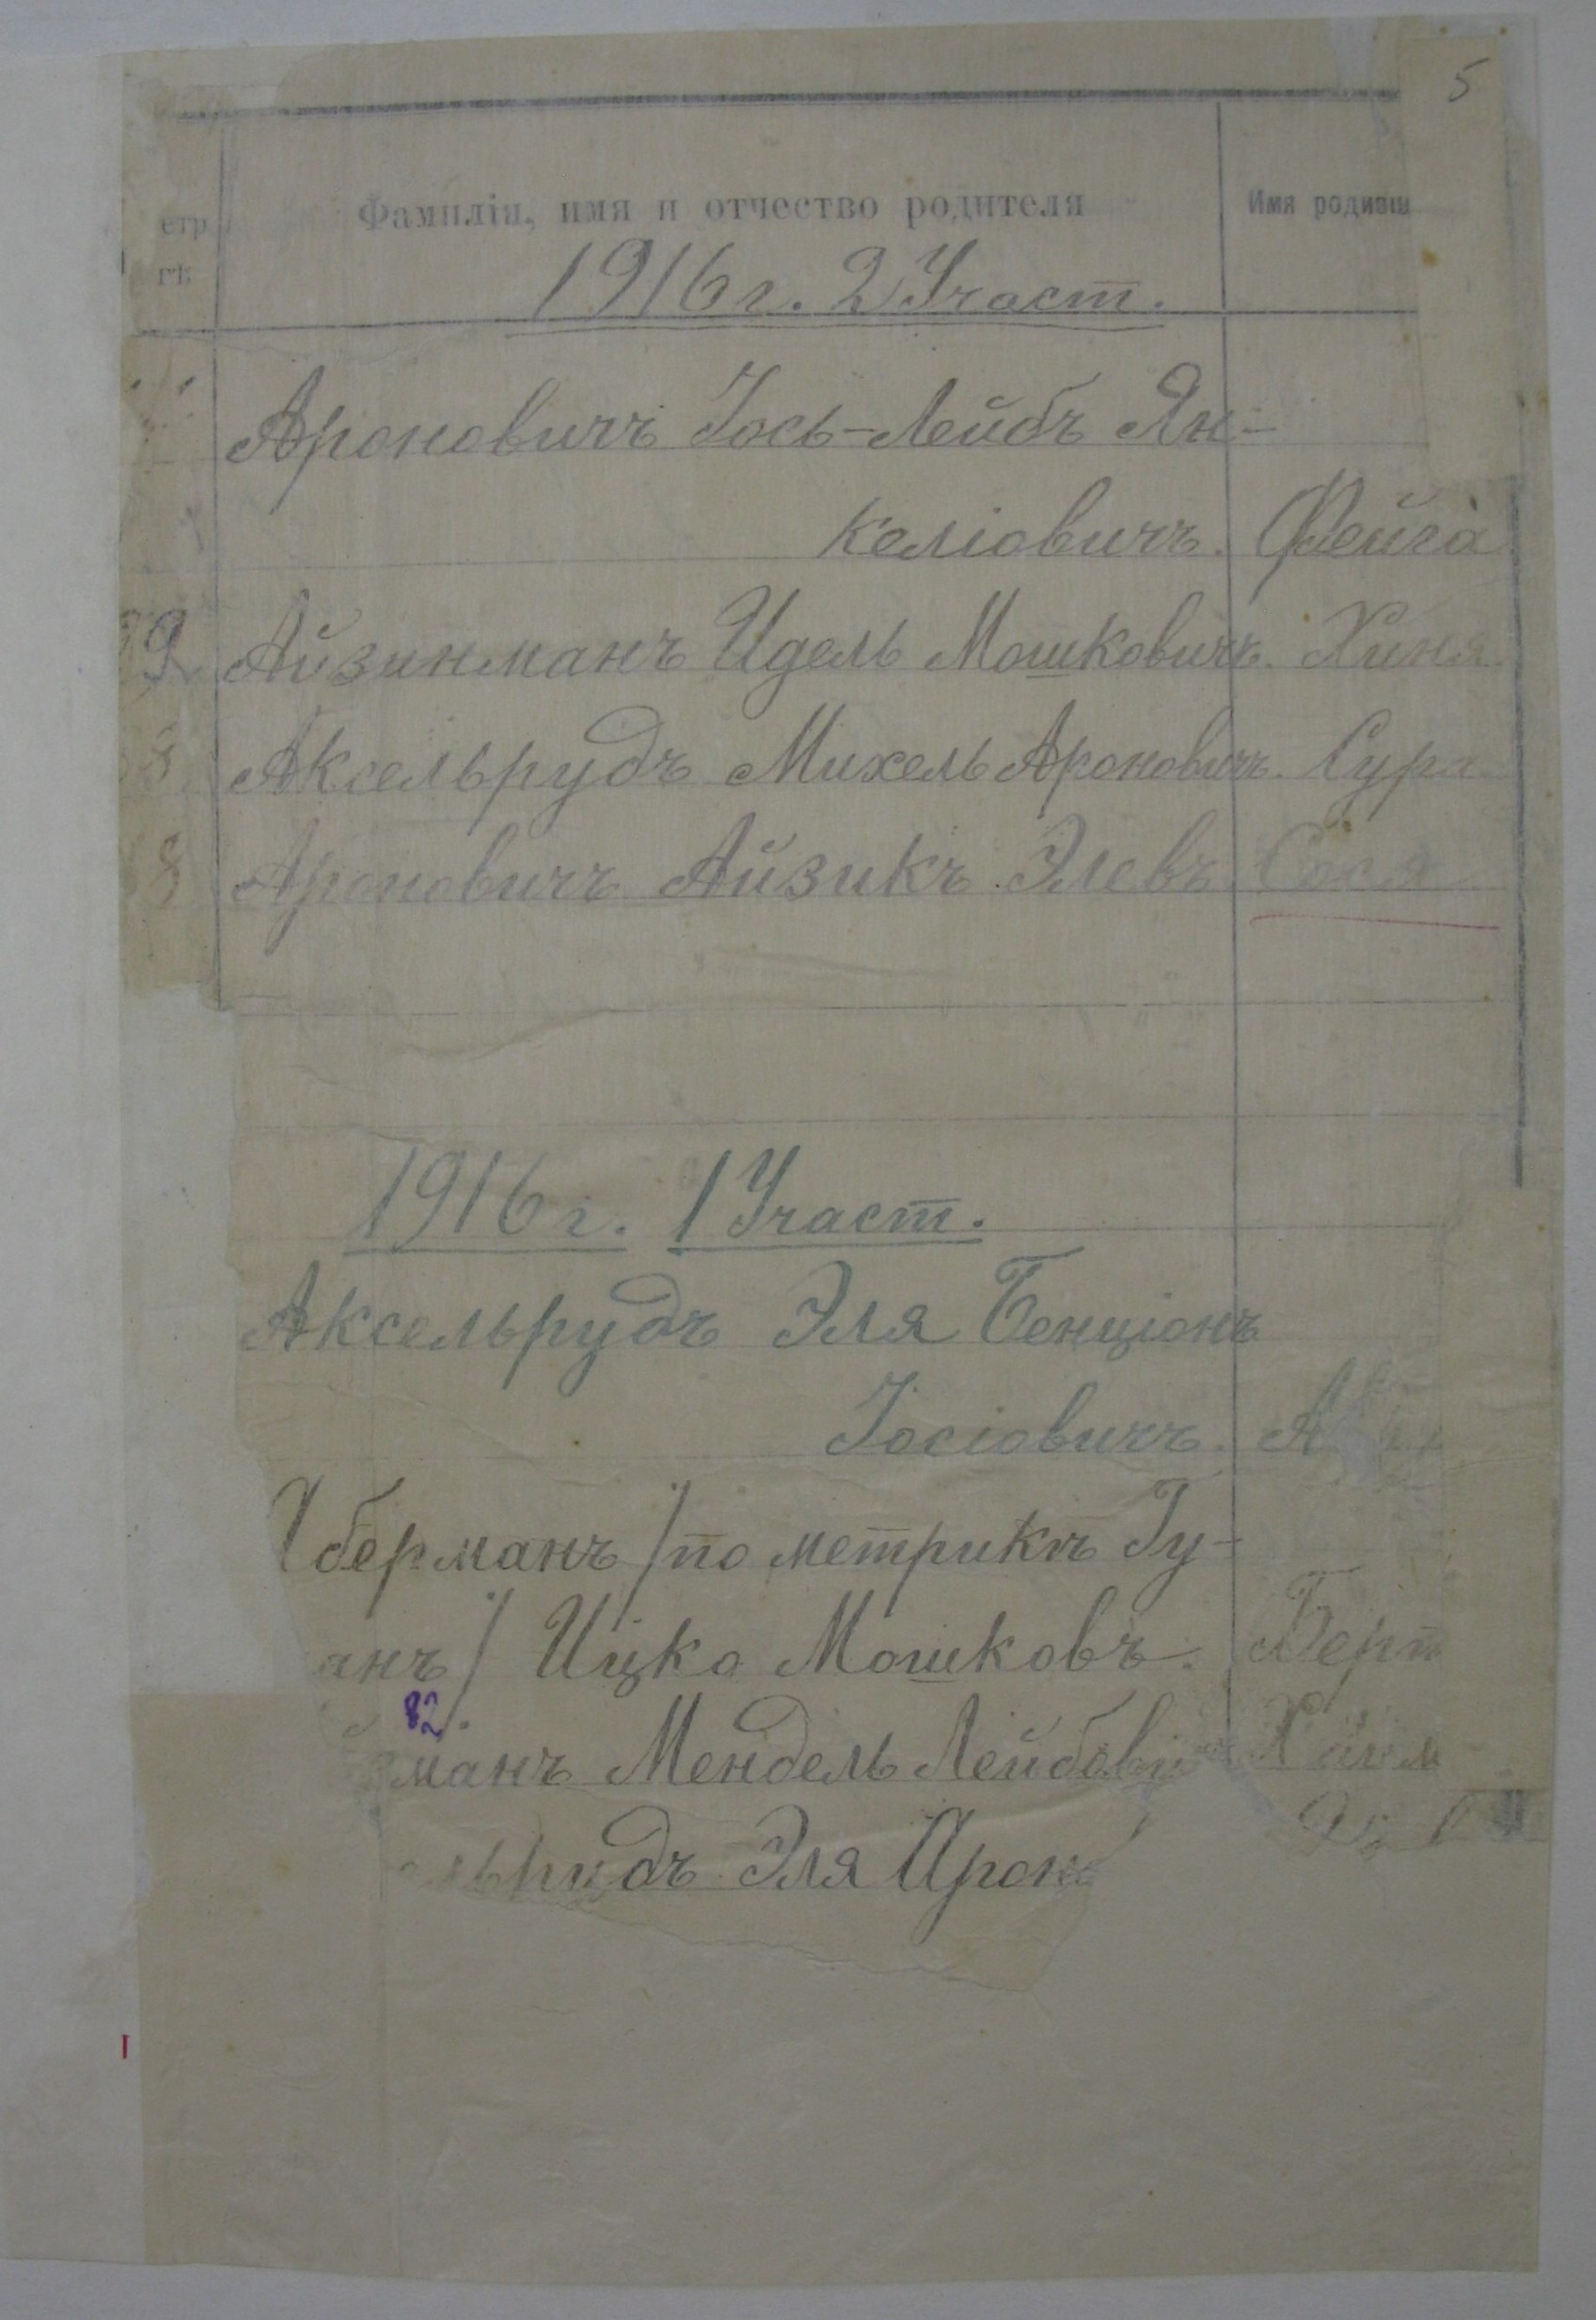 5
етр Фамилія, имя и отчество родителя Имя родивш
гѣ
1916 г. 2 Участ.
Ароновичъ Іось-Лейбъ Ян-
келіовичъ. Фейга
9 Айзинманъ Идель Мошковичъ. Хиня
8 Аксельрудъ Михель Ароновичъ. Сура
8 Ароновичъ Айзикъ Элевъ Сося
1916 г. 1 Участ.
Аксельрудъ Эля Бенціонъ
Іосіовичъ.
берманъ /по метрикѣ Гу-
анъ/ Ицко Мошковъ. Берт
82
манъ Мендель Лейбови Хаим
льрудъ Эля Ароно